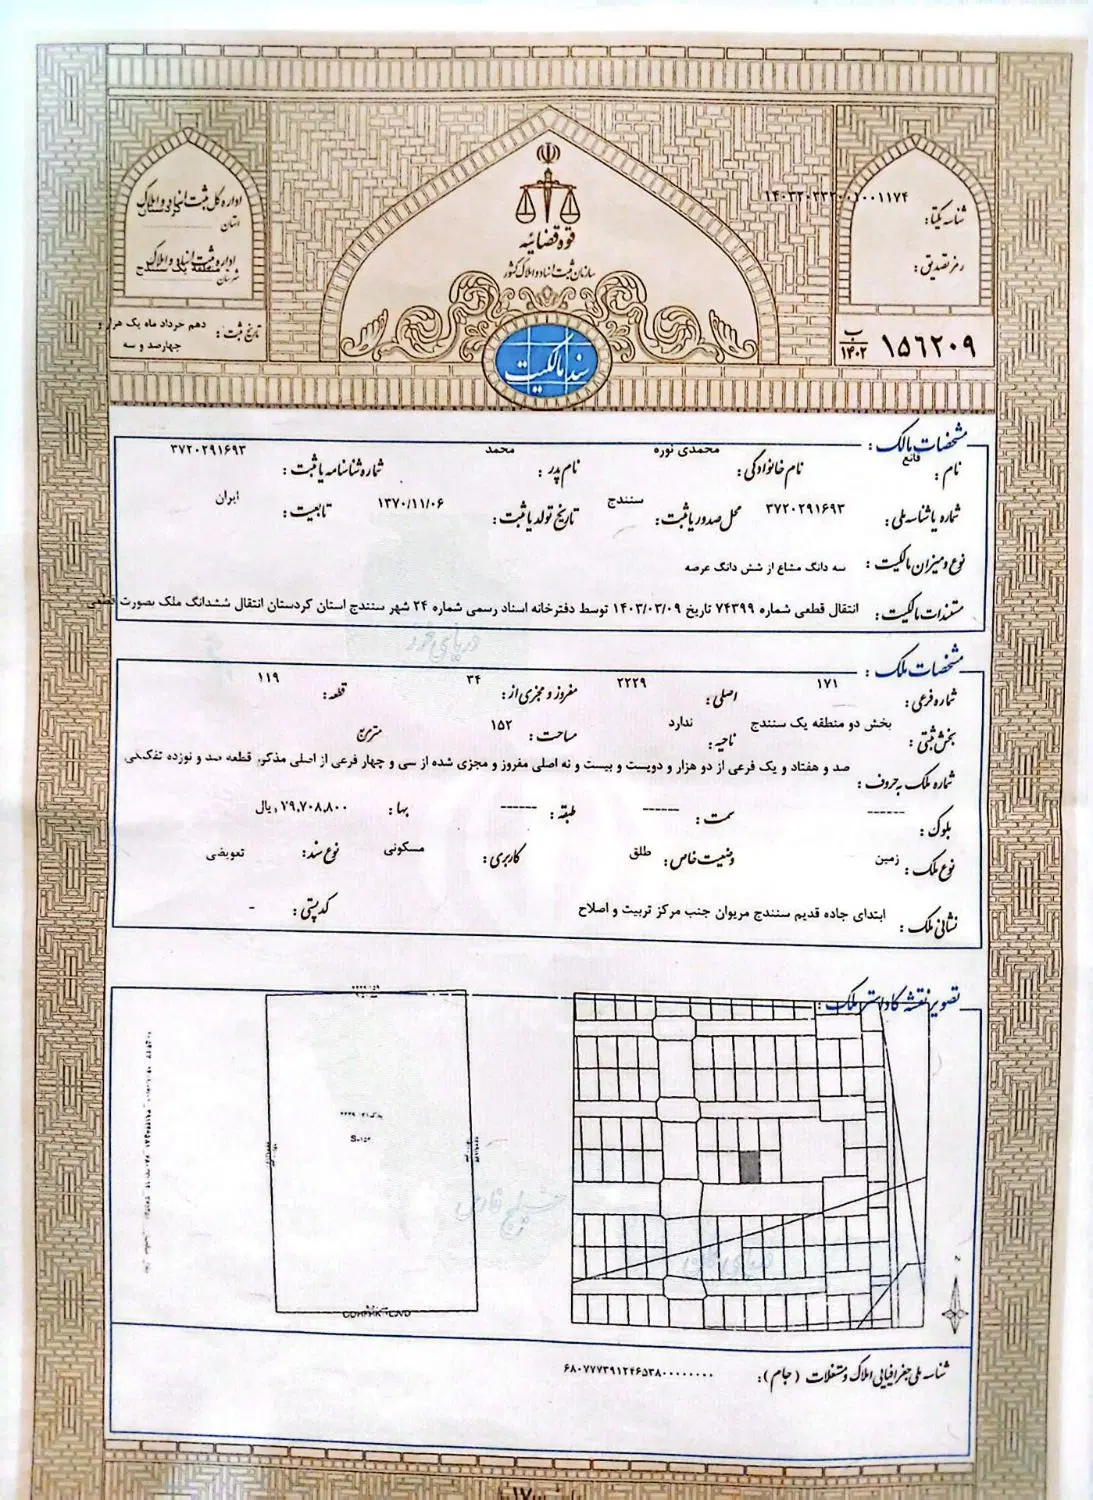 قوه قضائیه
سازمان ثبت اسناد و املاک کشور
سند مالکیت
شناسه یکتا: ۱۴۰۳۳۰۳۳۲۰۰۱۰۰۱۱۷۴
رمز تصدیق:
۱۵۶۲۰۹ ب ۱۴۰۲
اداره کل ثبت اسناد و املاک
استان کردستان
اداره ثبت اسناد و املاک
شهرستان منطقه یک سنندج
تاریخ ثبت: دهم خرداد ماه یک هزار و
چهارصد و سه
مشخصات مالک:
نام: قانع نام خانوادگی: محمدی نوره نام پدر: محمد شماره شناسنامه یا ثبت: ۳۷۲۰۲۹۱۶۹۳
شماره یا شناسه ملی: ۳۷۲۰۲۹۱۶۹۳ محل صدور یا ثبت: سنندج تاریخ تولد یا ثبت: ۱۳۷۰/۱۱/۰۶ تابعیت: ایران
نوع و میزان مالکیت: سه دانگ مشاع از شش دانگ عرصه
مستندات مالکیت: انتقال قطعی شماره ۷۴۳۹۹ تاریخ ۱۴۰۳/۰۳/۰۹ توسط دفترخانه اسناد رسمی شماره ۲۴ شهر سنندج استان کردستان انتقال ششدانگ ملک بصورت قطعی
دریای خزر
مشخصات ملک:
شماره فرعی: ۱۷۱ اصلی: ۲۲۲۹ مفروز و مجزی از: ۳۴ قطعه: ۱۱۹
بخش ثبتی: بخش دو منطقه یک سنندج ناحیه: ندارد مساحت: ۱۵۲ متر مربع
شماره ملک به حروف: صد و هفتاد و یک فرعی از دو هزار و دویست و بیست و نه اصلی مفروز و مجزی شده از سی و چهار فرعی از اصلی مذکور، قطعه صد و نوزده تفکیکی
بلوک: ------ سمت: ------ طبقه: ------ بها: ۷۹,۷۰۸,۸۰۰ ریال
نوع ملک: زمین وضعیت خاص: طلق کاربری: مسکونی نوع سند: تعویضی
نشانی ملک: ابتدای جاده قدیم سنندج مریوان جنب مرکز تربیت و اصلاح کد پستی: -
تصویر نقشه کاداستر ملک:
خلیج فارس
شناسه ملی جغرافیایی املاک و مستغلات (جام): ۶۸۰۷۷۷۳۹۱۲۴۶۵۳۸۰۰۰۰۰۰۰۰۰